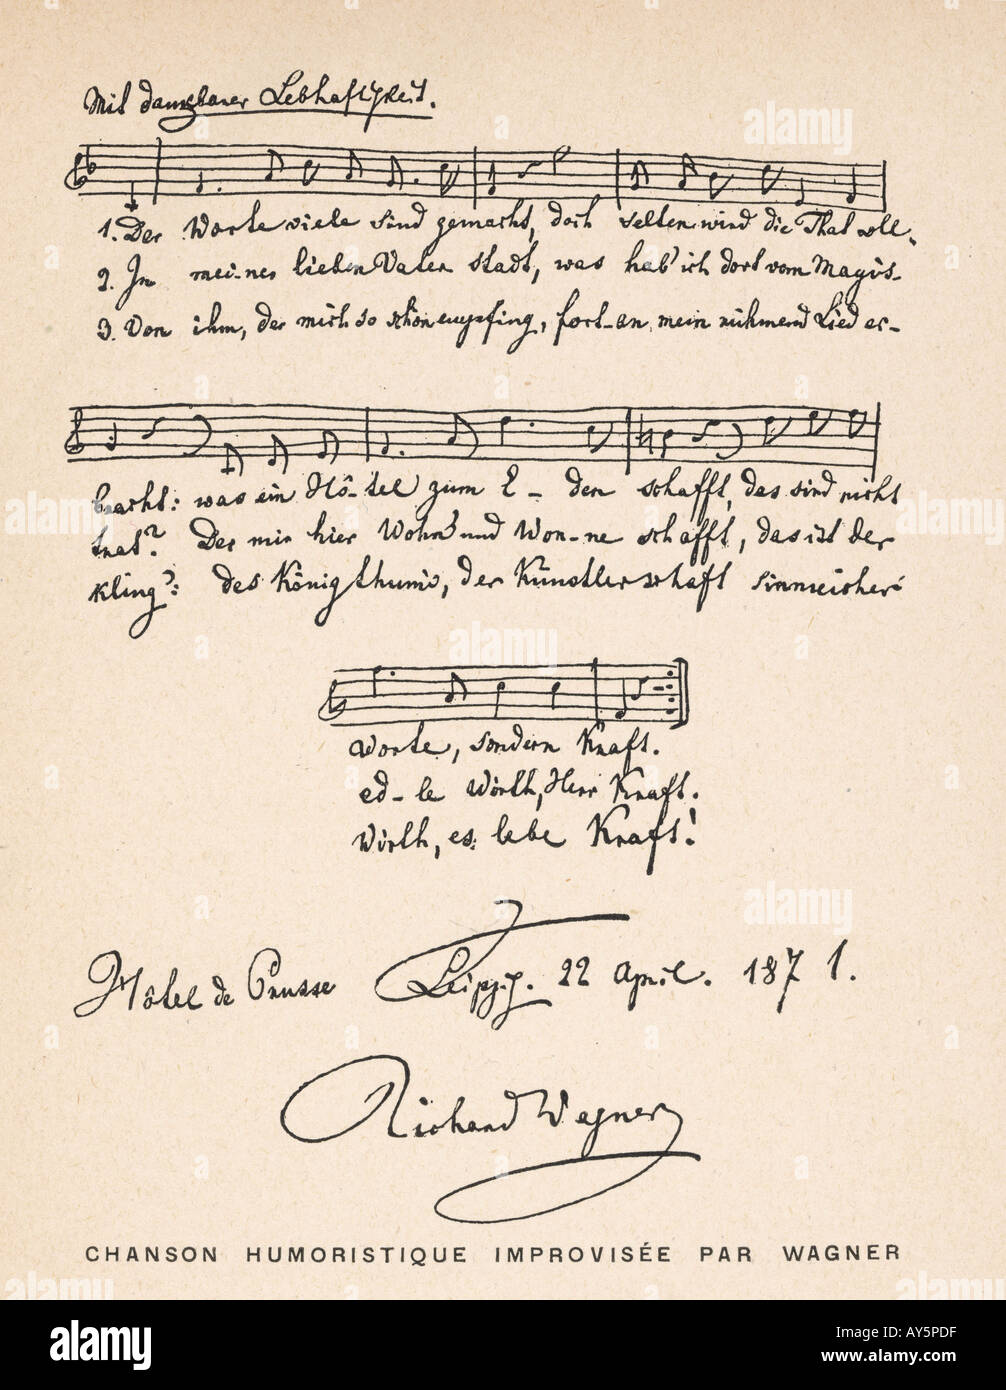 Mit dankbarer Lebhaftigkeit.
1. Der Worte viele sind gemacht, doch selten wird die That voll-
2. In mei-ner lieben Vater stadt, was hab' ich dort vom Magis-
3. Von ihm, der mich so schön empfing, fort-an mein rühmend Lied er-
bracht: was ein Hô-tel zum E- den schafft, das sind nicht
trat? Der mir hier Wohn' und Won-ne schafft, das ist der
kling': des Königthum's, der Künstlerschaft sinnreicher
Worte, sondern Kraft.
ed-le Wirth, Herr Kraft.
Wirth, es lebe Kraft!
Hôtel de Prusse Leipzig. 22 April. 1871.
Richard Wagner
CHANSON HUMORISTIQUE IMPROVISÉE PAR WAGNER
alamy
Image ID: AY5PDF
www.alamy.com